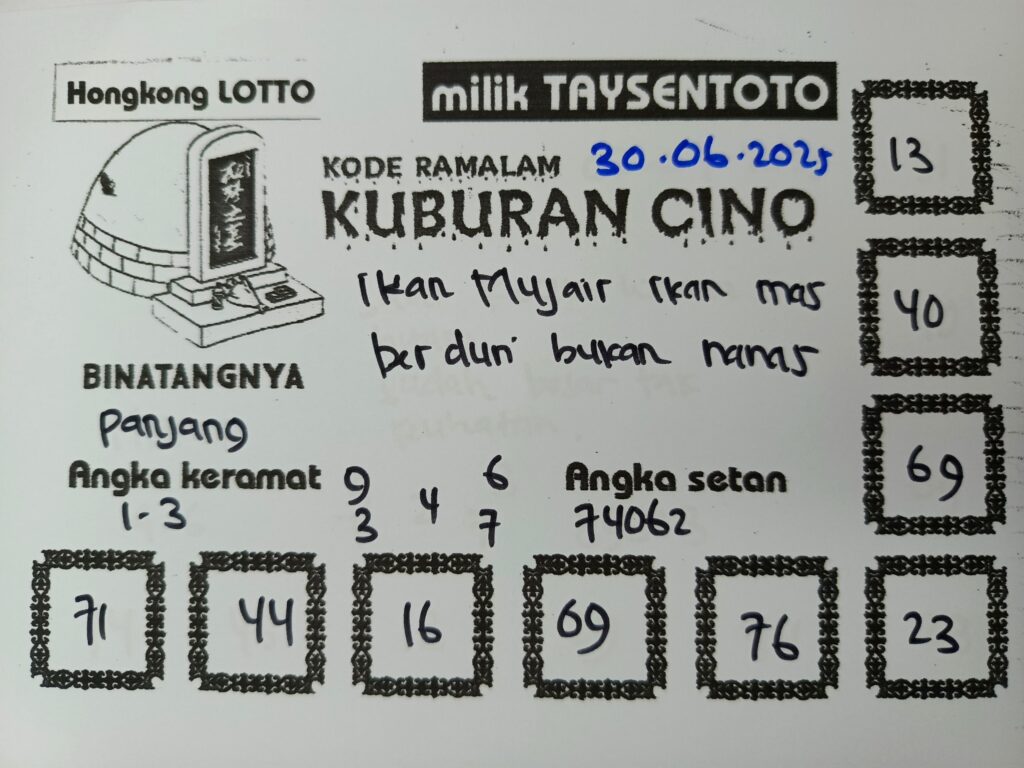 Hongkong LOTTO
milik TAYSENTOTO
KODE RAMALAM
30.06.2025
KUBURAN CINO
Ikan Mujair Ikan mas
berduri bukan nanas
BINATANGNYA
Panjang
Angka keramat
1-3
9 6
4
3 7
Angka setan
74062
13
40
69
71 44 16 69 76 23